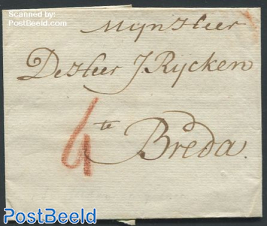 Scanned by
PostBeeld
Mijn Heer
De Heer J. Rycken
4
te
Breda.
PostBeeld